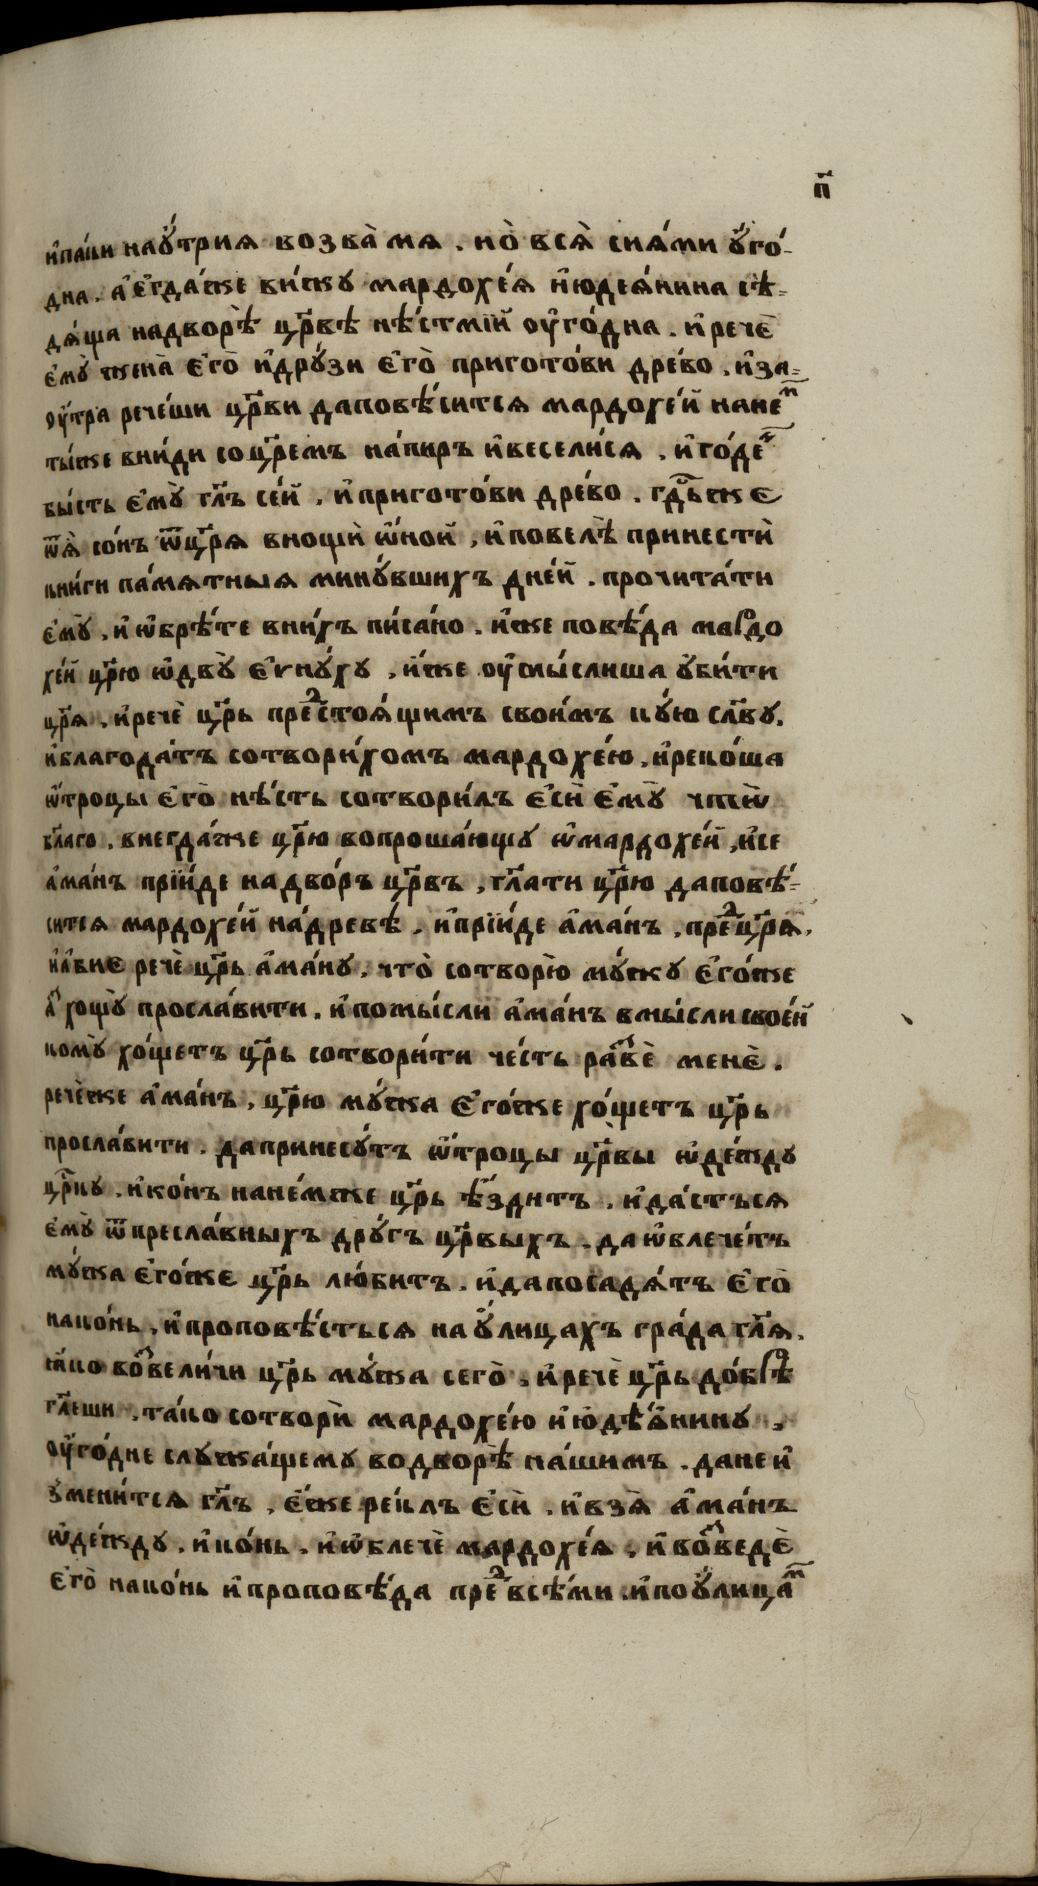 п҃
и҆па́ки наѹ҆́трия возва̀ мя . но̀ вся̀ сия́ми ѹ҆го́-
дна . а҆ є҆гда́же ви́жу мардохе́я и҆юдея́нина сѣ-
дя́ща надворѣ̀ цр҃вѣ нѣ́стмїй оу҆го́дна . и҆ речѐ
є҆мѹ̀ жена̀ є҆го̀ и҆дрѹ́зи є҆го̀ приготови древо . и҆за-
оу҆́тра рече́ши цр҃ви даповѣ́сится мардохе́й нанеⷨ
ты́же вни́ди соцр҃емъ на́пиръ и҆веселися . и҆ го́деⷭ
бы́сть є҆мѹ̀ гл҃ъ се́й . и҆приготови дре́во . гдⷭ҇ь же
ѿя̀ со́нъ ѿцр҃я внощѝ ѡ҆ной , и҆повелѣ̀ принестѝ
кни́ги па́мятныя минѹ́вшихъ дне́й . прочита́ти
є҆мѹ̀ . и҆ ѡ҆брѣ́те вни́хъ пи́сано . и҆же повѣ́да мардо
хе́й цр҃ю ѡ҆двѹ̀ є҆ѵнѹ́ху , и҆́же оу҆мы́слиша ѹ҆би́ти
цр҃я . и҆речѐ цр҃ь преⷣстоя́щимъ свои́мъ кѹ́ю сл҃ву .
и҆благода́ть сотвори́хомъ мардохе́ю . и҆реко́ша
ѡ҆́троцы є҆го̀ нѣ́сть сотвори́лъ є҆сѝ є҆мѹ̀ чтѡ̀
бл҃аго . внегда́же цр҃ю вопроша́ющу ѡ҆мардохе́й , и҆се
а҆ма́нъ прїи́де надво́ръ цр҃въ , гл҃ати цр҃ю даповѣ́-
сится мардохе́й на́древѣ . и҆прїи́де а҆ма́нъ , преⷣцр҃я .
и҆а҆бие речѐ цр҃ь а҆ма́ну . что̀ сотворю̀ мѹ́жу є҆го́же
а҆́зⷥ хощѹ̀ прославити . и҆помы́сли а҆ма́нъ вмы́сли свое́й
комѹ̀ хо́щетъ цр҃ь сотвори́ти че́сть раⷥвѐ менѐ .
рече́же а҆ма́нъ . цр҃ю мѹ́жа є҆го́же хо́щетъ цр҃ь
просла́вити . да принесѹ́тъ ѡ҆́троцы цр҃вы ѡ҆де́жду
цр҃ку . и҆ко́нъ нане́мже цр҃ь ѣ҆́здитъ . и҆да́стъся
є҆мѹ̀ ѿ пресла́вныхъ дрѹ́гъ цр҃выхъ . да ѡ҆блече́тъ
мѹ́жа є҆го́же цр҃ь лю́битъ . и҆дапосадя́тъ є҆го̀
нако́нь . и҆проповѣ́стъся наѹ҆́лицахъ гра́да гл҃я .
та́ко воⷥвели́чи цр҃ь мѹ́жа сего̀ . и҆речѐ цр҃ь до́брѣ
гл҃еши . та́ко сотворѝ мардохе́ю и҆юдѣ҆янину .
оу҆го́дне служа́щему водворѣ̀ на́шимъ . дане и҆
змени́тся гл҃ъ , є҆́же ре́клъ є҆сѝ . и҆взя̀ а҆ма́нъ
ѡ҆де́жду . и҆ко́нь . и҆ѡ҆блечѐ мардохе́я . и҆воⷥведѐ
є҆го̀ нако́нь и҆проповѣ́да преⷣвсѣ́ми . и҆поѹ҆лицаⷨ